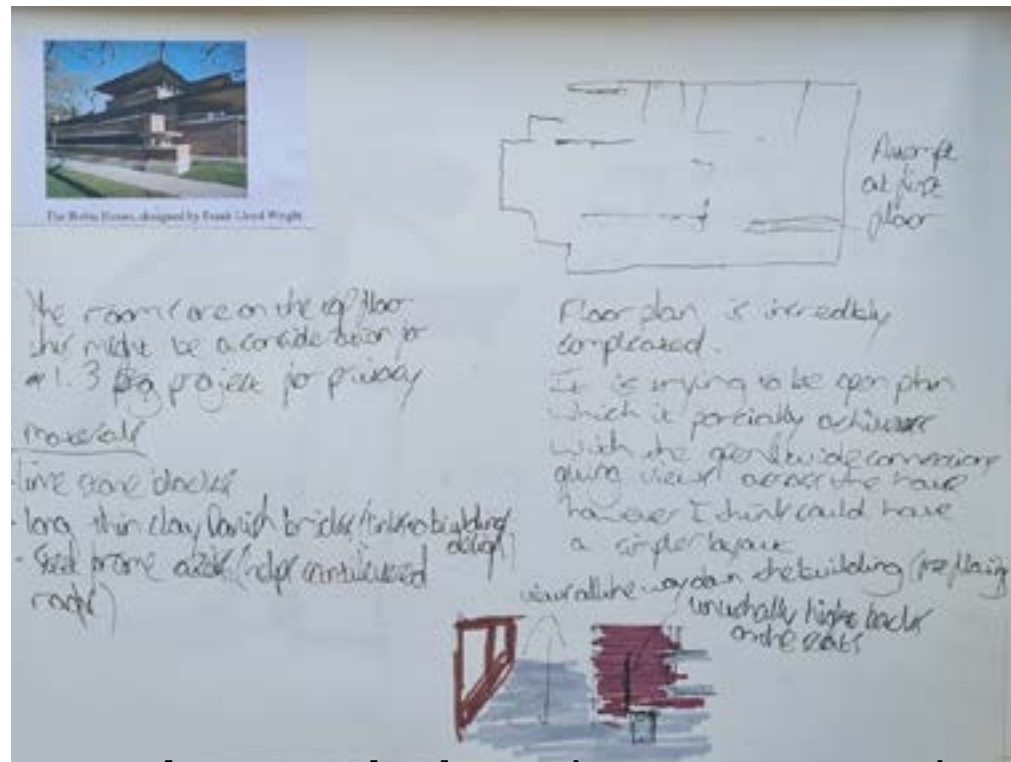 The Robie House, designed by Frank Lloyd Wright
at first
floor
The rooms are on the top floor
this might be a consideration for
1.3 project for privacy
materials
- lime stone blocks
- long thin clay Danish bricks (links building
design)
- Steel frame (helps cantilevered
roofs)
Floor plan is incredibly
complicated.
It is trying to be open plan
which it partially achieves
with the wide connections
giving views across the house
however I think could have
a simpler layout
views all the way down the building (free flowing
unushally highe backs
on the seats